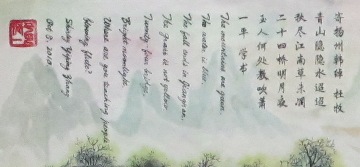 寄扬州韩绰 杜牧
青山隐隐水迢迢
秋尽江南草未凋
二十四桥明月夜
玉人何处教吹箫
一卓 学书
The mountains are green.
The water is blue.
The fall ends in Jiangnan,
The grass is not yellow.
Twenty four bridges,
Bright moonlight.
Where are you teaching people
blowing flute?
Sheng Yiping Zhang
Oct 3, 2013